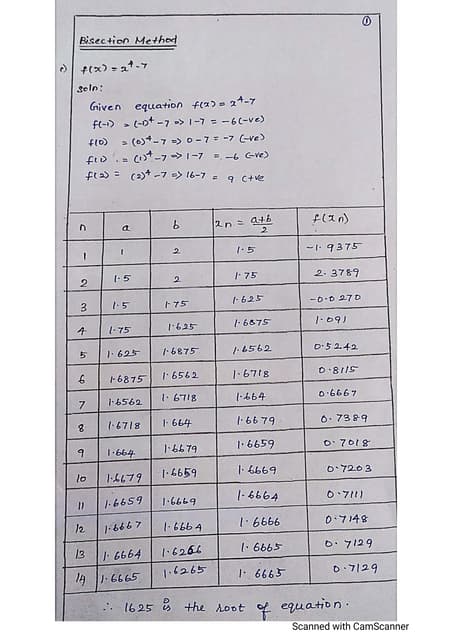 ①
Bisection Method
f(x) = x⁴-7
soln:
Given equation f(x) = x⁴-7
f(-1) = (-1)⁴ -7 => 1-7 = -6 (-ve)
f(0) = (0)⁴ -7 => 0-7 = -7 (-ve)
f(1) = (1)⁴ -7 => 1-7 = -6 (-ve)
f(2) = (2)⁴ -7 => 16-7 = 9 (+ve
n a b xn = a+b/2 f(xn)
1 1 2 1.5 -1.9375
2 1.5 2 1.75 2.3789
3 1.5 1.75 1.625 -0.0270
4 1.75 1.625 1.6875 1.091
5 1.625 1.6875 1.6562 0.5242
6 1.6875 1.6562 1.6718 0.8115
7 1.6562 1.6718 1.664 0.6667
8 1.6718 1.664 1.6679 0.7389
9 1.664 1.6679 1.6659 0.7018
10 1.6679 1.6659 1.6669 0.7203
11 1.6659 1.6669 1.6664 0.7111
12 1.6667 1.6664 1.6666 0.7148
13 1.6664 1.6266 1.6665 0.7129
14 1.6665 1.6265 1.6665 0.7129
∴ 1625 is the root of equation.
Scanned with CamScanner